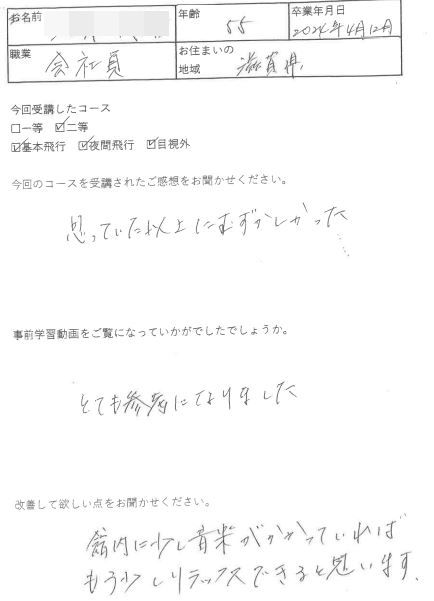 お名前
年齢 55
卒業年月日 2024年4月12日
職業 会社員
お住まいの
地域 滋賀県
今回受講したコース
□一等 ☑二等
☑基本飛行 ☑夜間飛行 ☑目視外
今回のコースを受講されたご感想をお聞かせください。
思っていた以上にむずかしかった
事前学習動画をご覧になっていかがでしたでしょうか。
とても参考になりました
改善して欲しい点をお聞かせください。
館内に少し音楽がかかっていれば
もう少しリラックスできると思います。